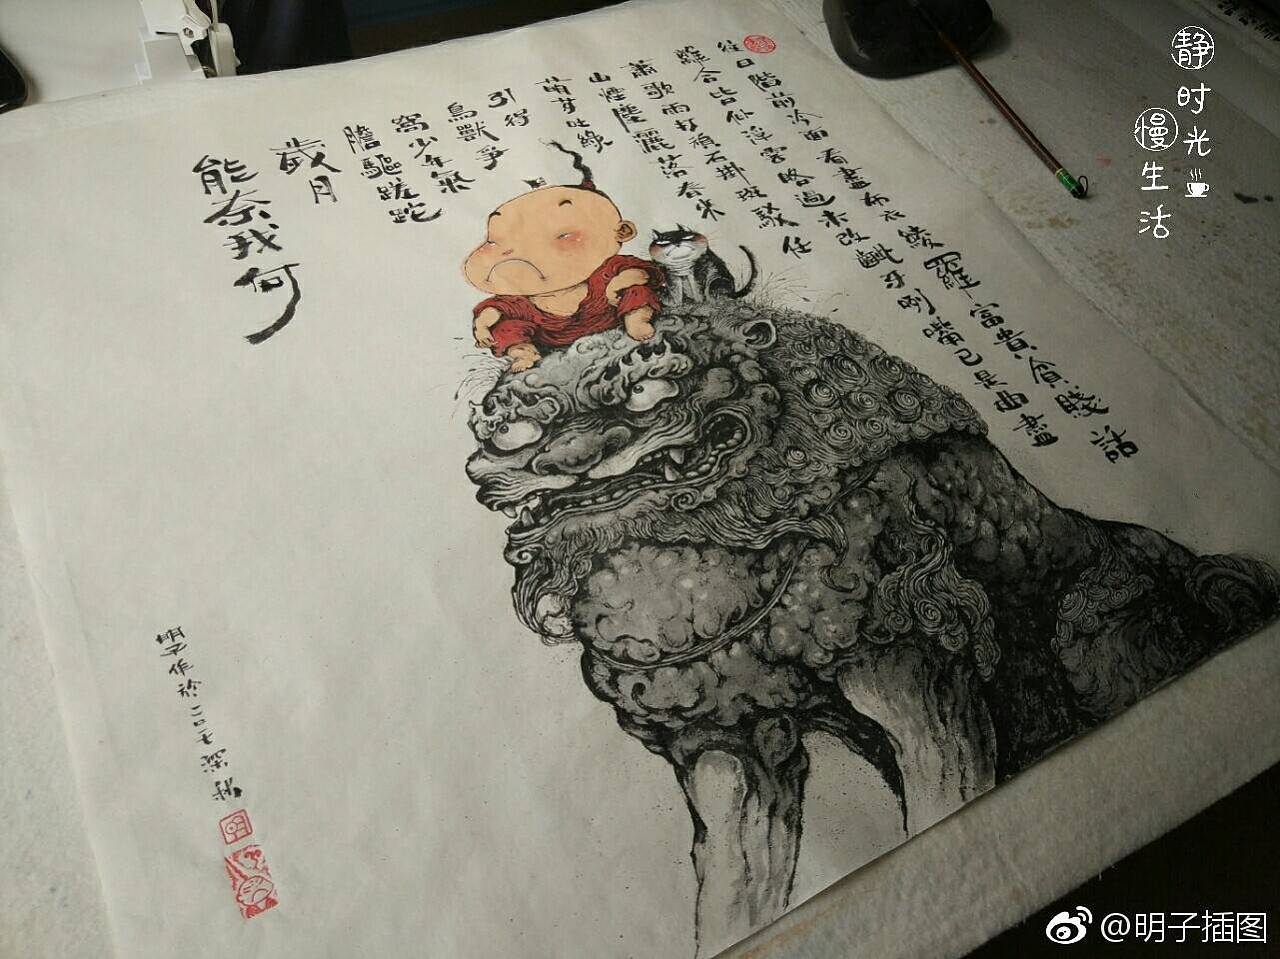 往日階前冷面看盡布衣綾羅富貴貧賤話
離合皆似浮雲略過未改齜牙咧嘴已是曲盡
蕭歌雨打頑石掛斑駁任
山煙塵灑落春來
萌芽吐綠
引得
鳥獸爭
窩少年氣
膽驅蹉跎
歲月
能奈我何
明子作於二〇一七深
静时光
慢生活
@明子插图